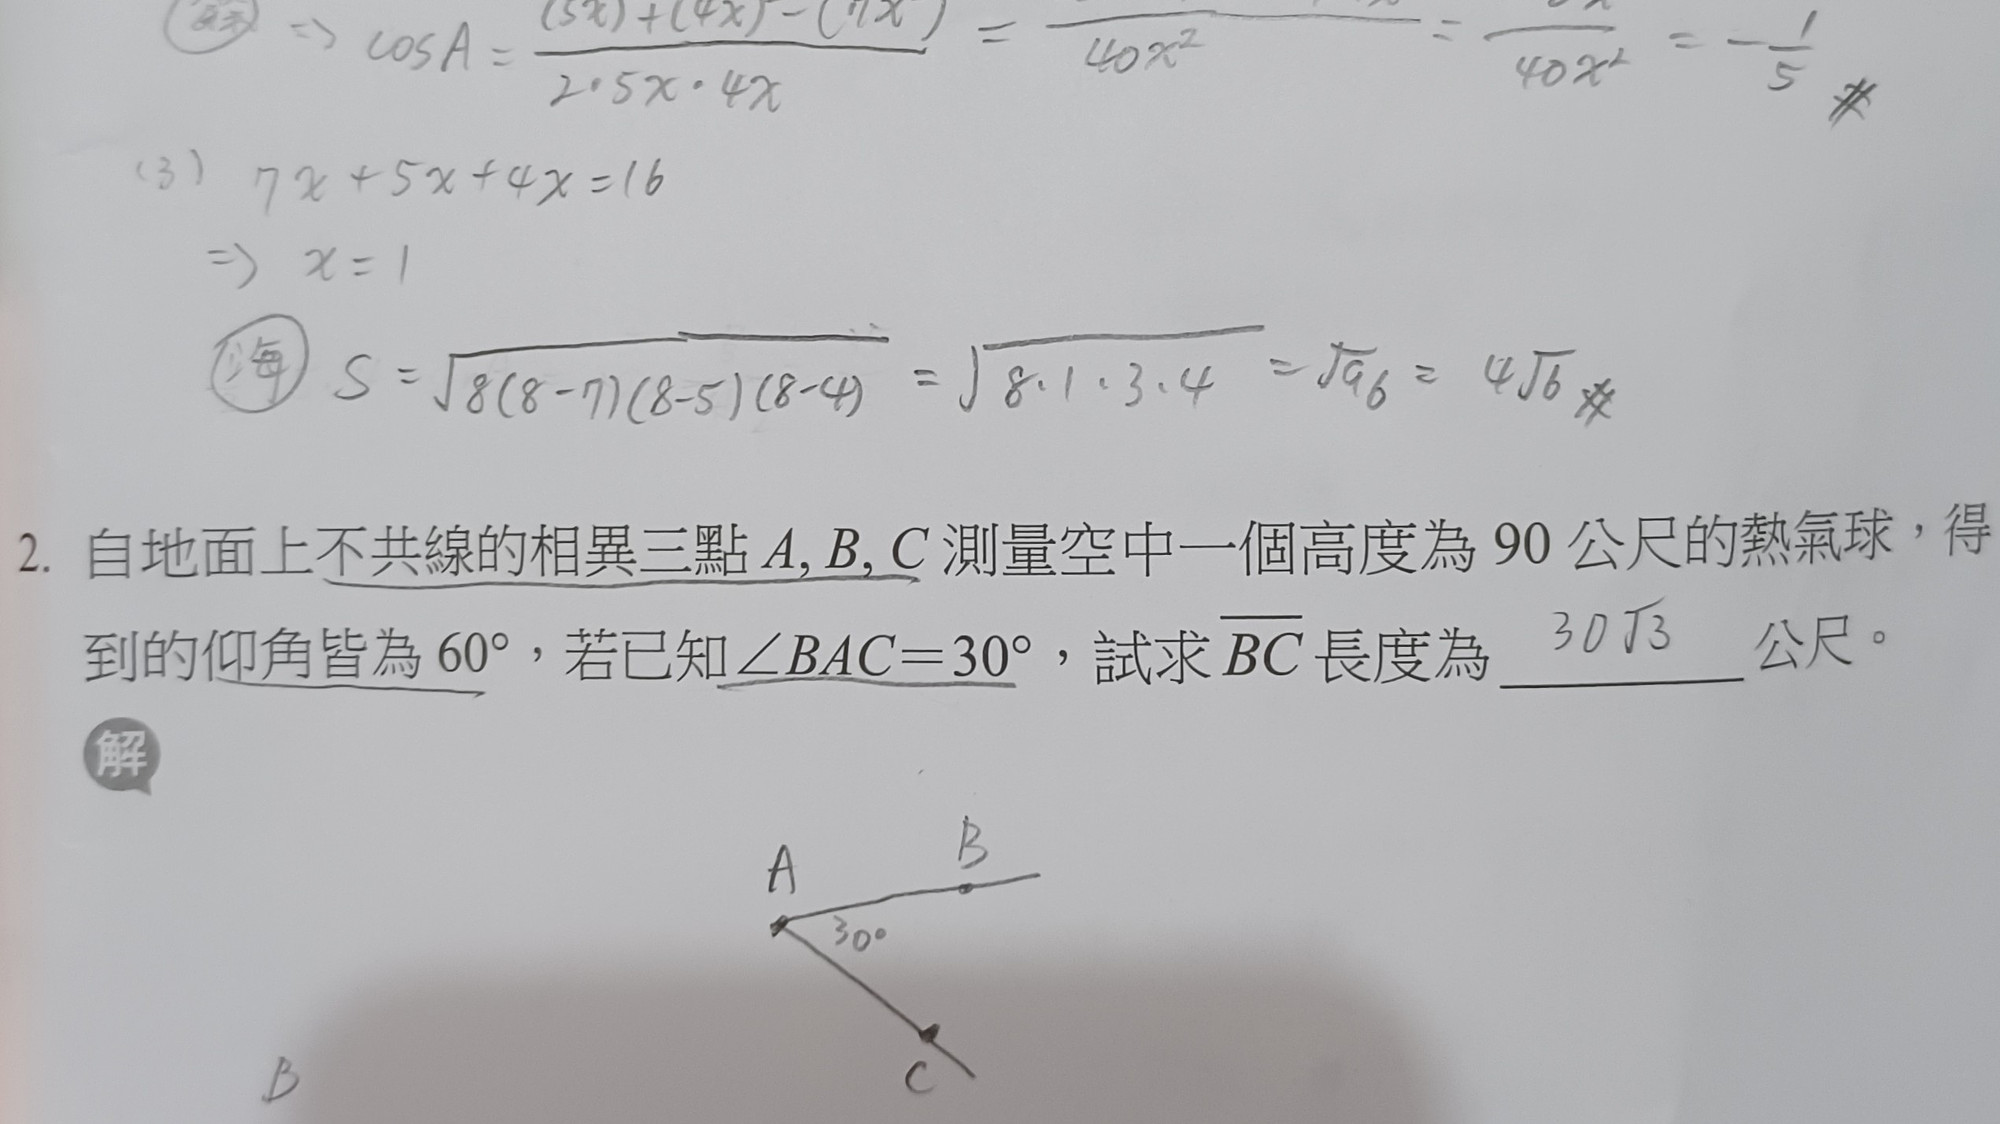 ⇒ cosA = (5x)+(4x)²-(7x²) / 2·5x·4x = / 40x² = / 40x² = -1/5 #
(3) 7x+5x+4x=16
⇒ x=1
海 S=√8(8-7)(8-5)(8-4) = √8·1·3·4 = √96 = 4√6 #
2. 自地面上不共線的相異三點 A, B, C 測量空中一個高度為 90 公尺的熱氣球,得
到的仰角皆為 60°,若已知∠BAC=30°,試求 BC 長度為 30√3 公尺。
解
A B
30°
C
B